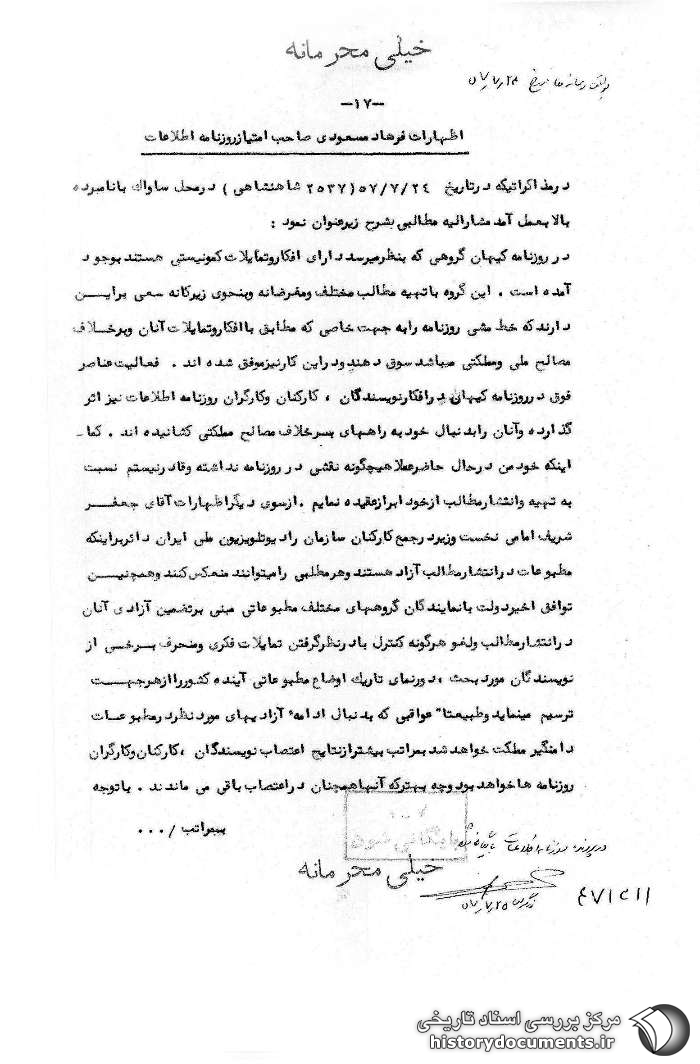 خیلی محرمانه
۵۷٫۷٫۲۸
-۱۷-
اظهارات فرهاد مسعودی صاحب امتیاز روزنامه اطلاعات
در مذاکراتیکه در تاریخ ۵۷/۷/۲۴ (۲۵۳۷ شاهنشاهی) در محل ساواک با نامبرده
بالا بعمل آمد مشارالیه مطالبی بشرح زیر عنوان نمود :
در روزنامه کیهان گروهی که بنظر میرسد دارای افکار و تمایلات کمونیستی هستند بوجود
آمده است . این گروه با تهیه مطالب مختلف و مغرضانه و بنحوی زیرکانه سعی بر ایـــن
دارند که خط مشی روزنامه را به جهت خاصی که مطابق با افکار و تمایلات آنان و بر خلاف
مصالح ملی و مملکتی میباشد سوق دهند و در این کار نیز موفق شده اند . فعالیت عناصر
فوق در روزنامه کیهان در افکار نویسندگان ، کارکنان و کارگران روزنامه اطلاعات نیز اثر
گذارده و آنان را بدنبال خود به راههای بر خلاف مصالح مملکتی کشانیده اند . کما-
اینکه خود من در حال حاضر عملا هیچگونه نقشی در روزنامه نداشته و قادر نیستم نسبت
به تهیه و انتشار مطالب از خود ابراز عقیده نمایم . از سوی دیگر اظهارات آقای جعفـــر
شریف امامی نخست وزیر در جمع کارکنان سازمان رادیو تلویزیون ملی ایران دائر بر اینکه
مطبوعات در انتشار مطالب آزاد هستند و هر مطلبی را میتوانند منعکس کنند و همچنیـــن
توافق اخیر دولت با نمایندگان گروههای مختلف مطبوعاتی مبنی بر تضمین آزادی آنان
در انتشار مطالب و لغو هرگونه کنترل با در نظر گرفتن تمایلات فکری و منحرف برخــی از
نویسندگان مورد بحث ، دورنمای تاریک اوضاع مطبوعاتی آینده کشور را از هر جهـــت
ترسیم مینماید و طبیعتا" عواقبی که بدنبال ادامه آزادیهای مورد نظر در مطبوعـات
دامنگیر مملکت خواهد شد بمراتب بیشتر از نتایج اعتصاب نویسندگان ، کارکنان و کارگران
روزنامه ها خواهد بود و چه بهتر که آنها همچنان در اعتصاب باقی می ماندند . با توجه
بمراتب / ...
بایگانی شود
در پرونده روزنامه اطلاعات بایگانی شود
خیلی محرمانه
۵۷٫۷٫۲۵
مرکز بررسی اسناد تاریخی
historydocuments.ir